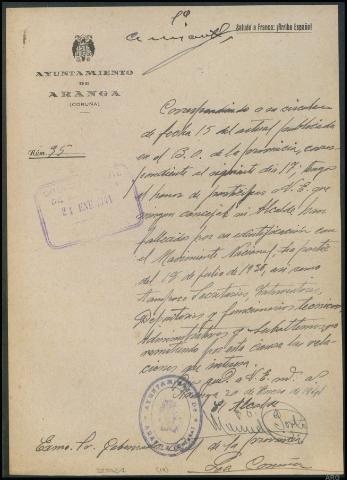 1º
Saludo a Franco: ¡Arriba España!
AYUNTAMIENTO
DE
ARANGA
(CORUÑA)
Núm. 95
21 ENE 1941
Correspondiendo a su circular
de fecha 15 del actual publicada
en el B.O. de la provincia, corres-
pondiente al siguiente dia 17; tengo
el honor de participar a V.E. que
ningun concejal ni Alcalde han
fallecidos por su identificación con
el Movimiento Nacional, a partir
del 18 de julio de 1936, asi como
tampoco Secretarios, Interventores,
Depositarios y funcionarios tecnicos,
Administrativos y Subalternos, no
remitiendo por esta causa las rela-
ciones que
Dios gue. a V.E. ms. as.
Aranga 20 de Enero de 1941
El Alcalde
Manuel
AYUNTAMIENTO
ARANGA
Exmo. Sr. Gobernador de la provincia
La Coruña